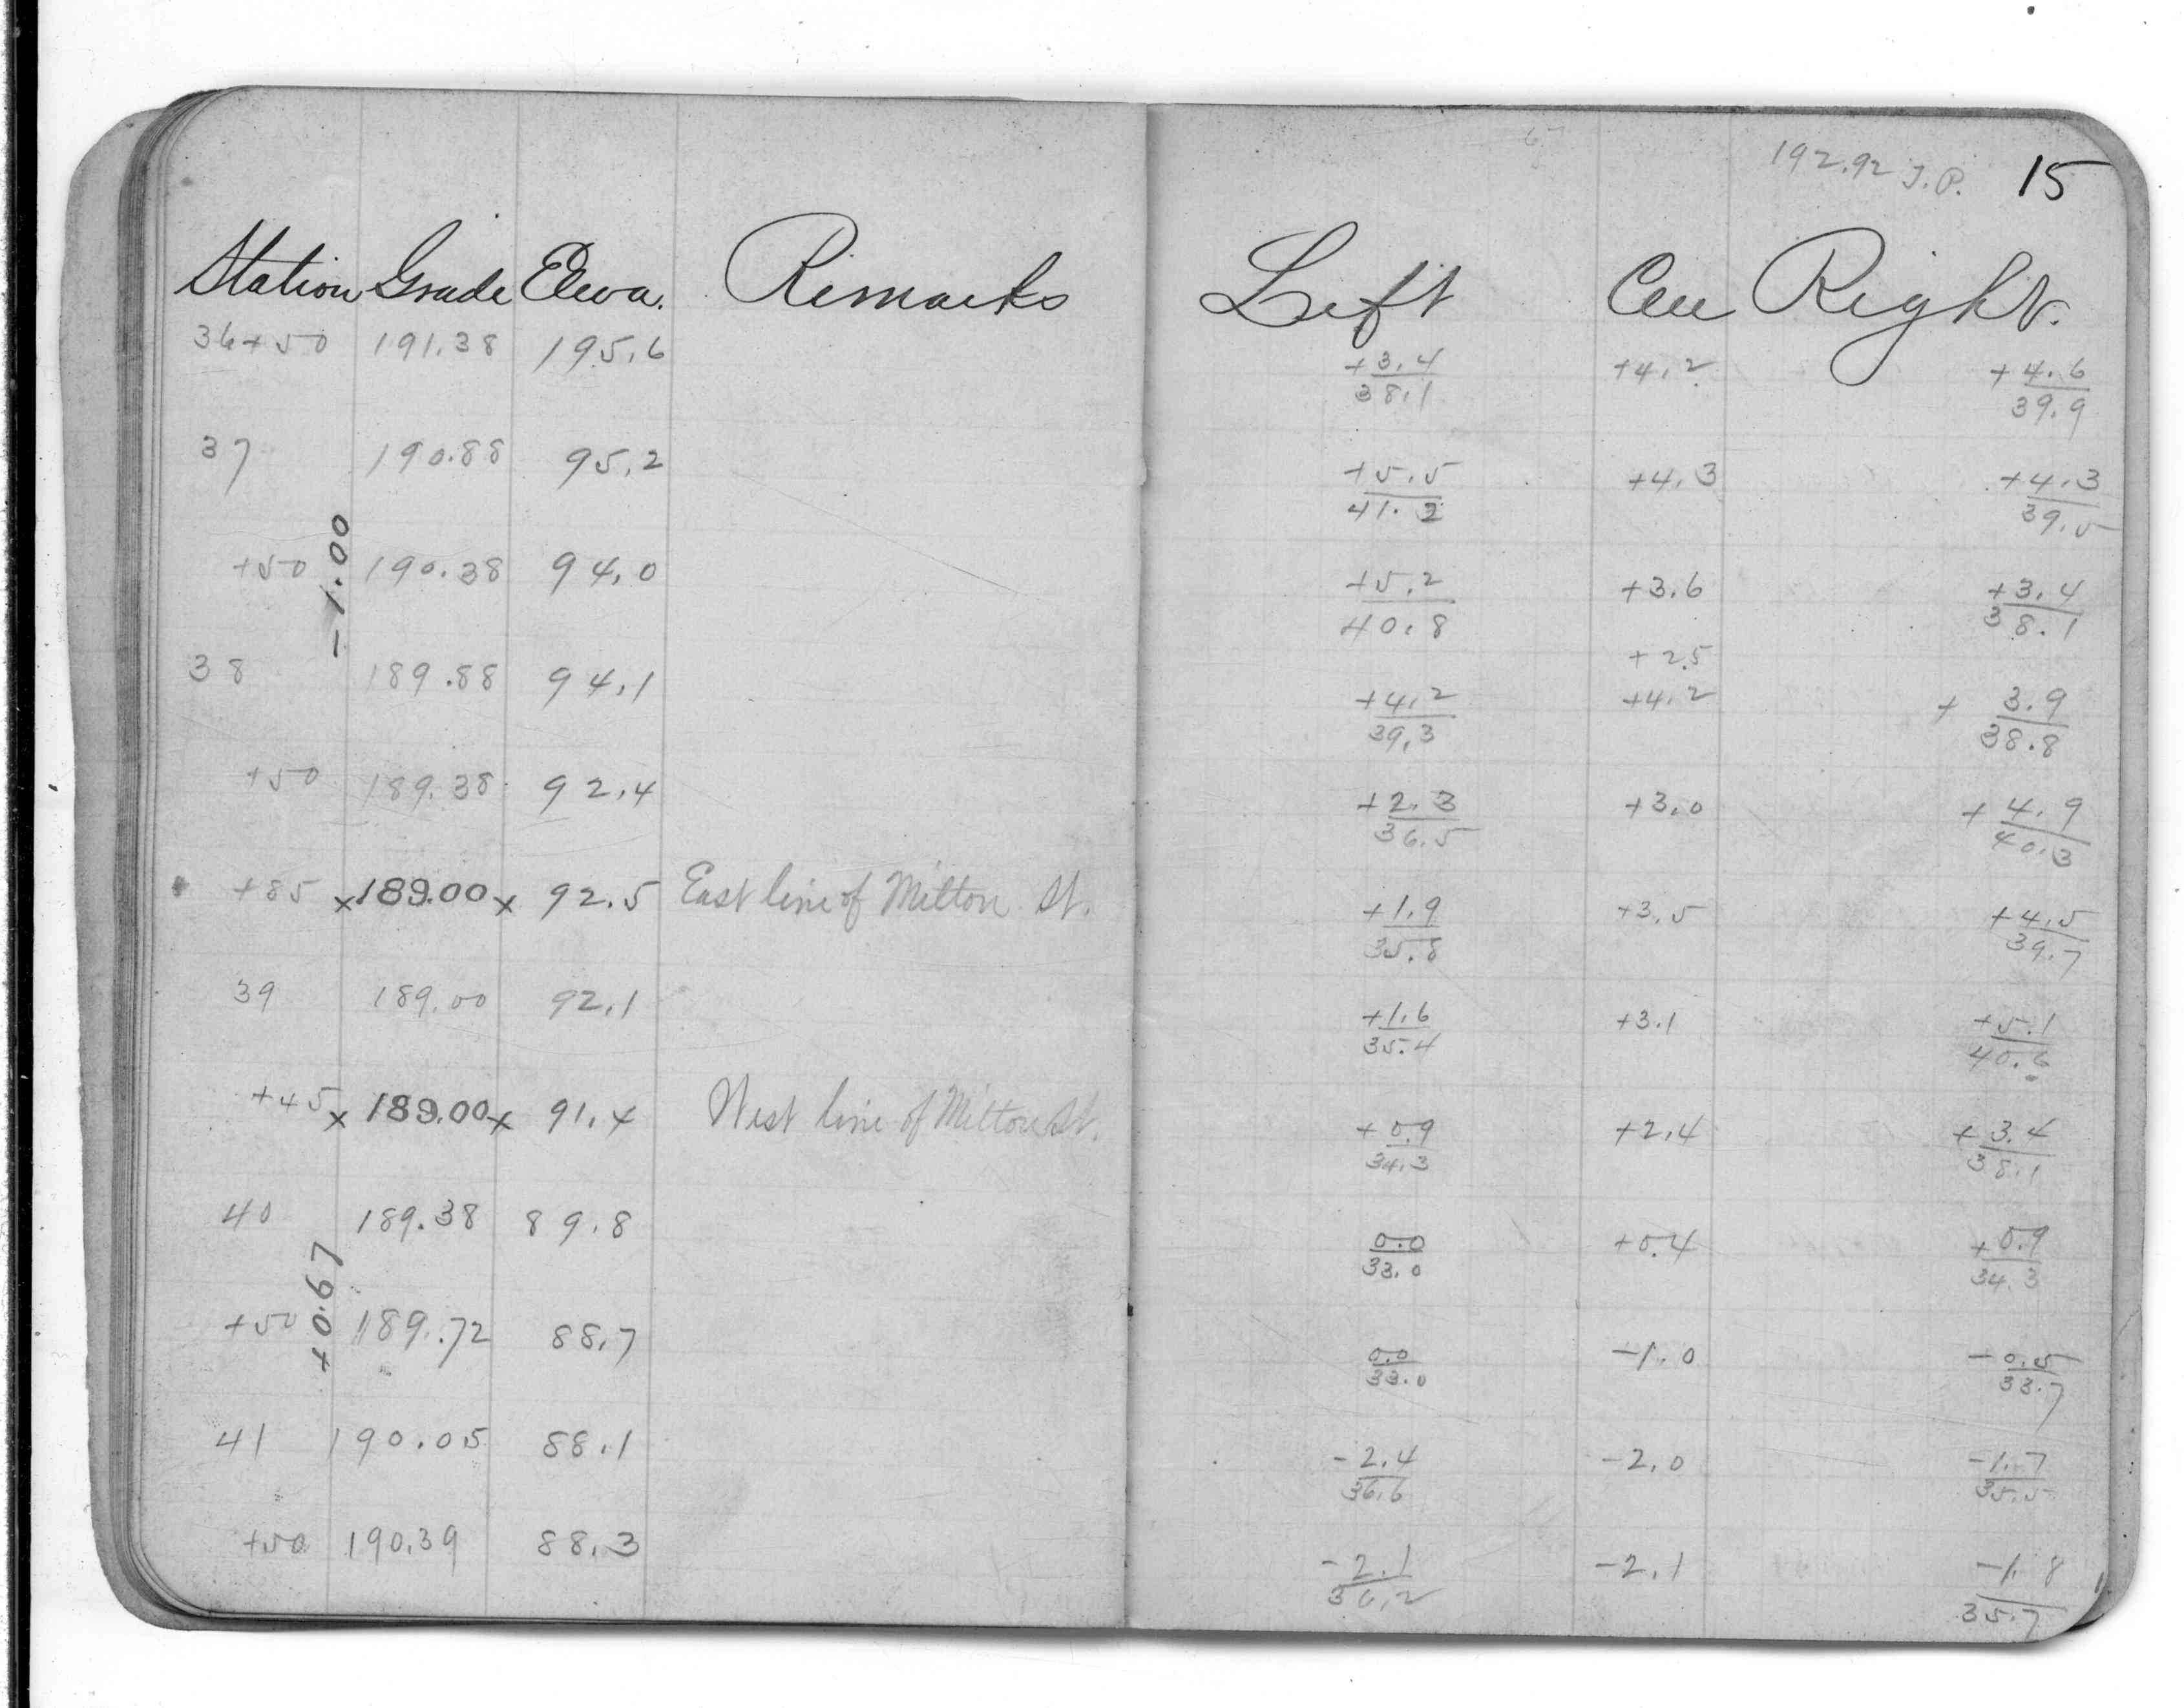 192.92 T.P. 15
Station Grade Eleva. Remarks Left Cen Right.
36+50 191.38 195.6 +3.4 +4.2 +4.6
38.1 39.9
37 190.88 95.2 +5.5 +4.3 +4.3
41.2 39.5
-1.00
+50 190.38 94.0 +5.2 +3.6 +3.4
40.8 38.1
+2.5
38 189.88 94.1 +4.2 +4.2 + 3.9
39.3 38.8
+50 189.38 92.4 +2.3 +3.0 + 4.9
36.5 40.3
+85 x189.00x 92.5 East line of Milton St. +1.9 +3.5 +4.5
35.8 39.7
39 189.00 92.1 +1.6 +3.1 +5.1
35.4 40.6
+45 x 189.00x 91.4 West line of Milton St. +0.9 +2.4 +3.4
34.3 38.1
40 189.38 89.8 0.0 +0.4 +0.9
33.0 34.3
+0.67
+50 189.72 88.7 0.0 -1.0 -0.5
33.0 33.7
41 190.05 88.1 -2.4 -2.0 -1.7
36.6 35.5
+50 190.39 88.3 -2.1 -2.1 -1.8
36.2 35.7